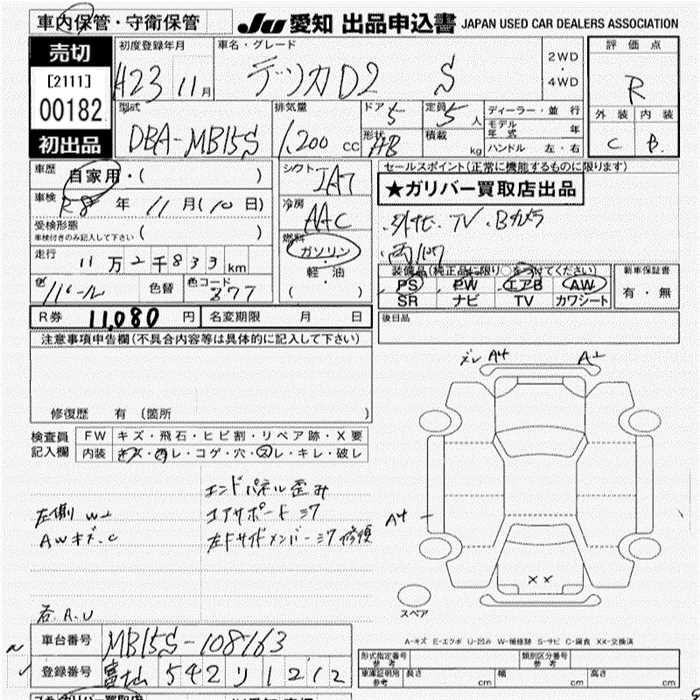 車内保管・守衛保管
JU 愛知 出品申込書 JAPAN USED CAR DEALERS ASSOCIATION
売切
[2111]
00182
初出品
初度登録年月
H23 11月
車名・グレード
デリカD2 S
2WD
・
4WD
評価点
R
外装 内装
C B
型式
DBA-MB15S
排気量
1,200 cc
ドア 5
形状 HB
定員 5人
積載 kg
ディーラー・並行
モデル年式 年
ハンドル 左・右
車歴
自家用・( )
車検
R8年 11月(10日)
受検形態
車検付きのみ記入して下さい ( )
走行
11万2千833km
色
パール
色替
色コード
377
シフト
IAT
冷房
AAC
燃料
ガソリン
・
軽・油
( )
セールスポイント(正常に機能するものに限ります)
★ガリバー買取店出品
・外ナビ・TV・Bカメラ
装備品(純正品に限り○をつけてください)
PS PW エアB AW
SR ナビ TV カワシート
新車保証書
有・無
R券 11,080円 名変期限 月 日
後日品
注意事項申告欄(不具合内容等は具体的に記入して下さい)
修復歴 有 (箇所 )
検査員
記入欄
FW キズ・飛石・ヒビ割・リペア跡・X要
内装 キズ・汚レ・コゲ・穴・スレ・キレ・破レ
エンドパネル歪み
左側 W2
コアサポートミワ
AWキズ.C
左FサイドメンバーミワBP修復
右 A.U
ズレ A4
A2
A4
XX
スペア
A-キズ E-エクボ U-凹み W-補修跡 S-サビ C-腐食 XX-交換済
車台番号 MB15S-108163
登録番号 富山 542 リ 1212
形式指定番号
参考
類別区分番号
参考
車庫証明用
参考
長さ cm 幅 cm 高さ cm